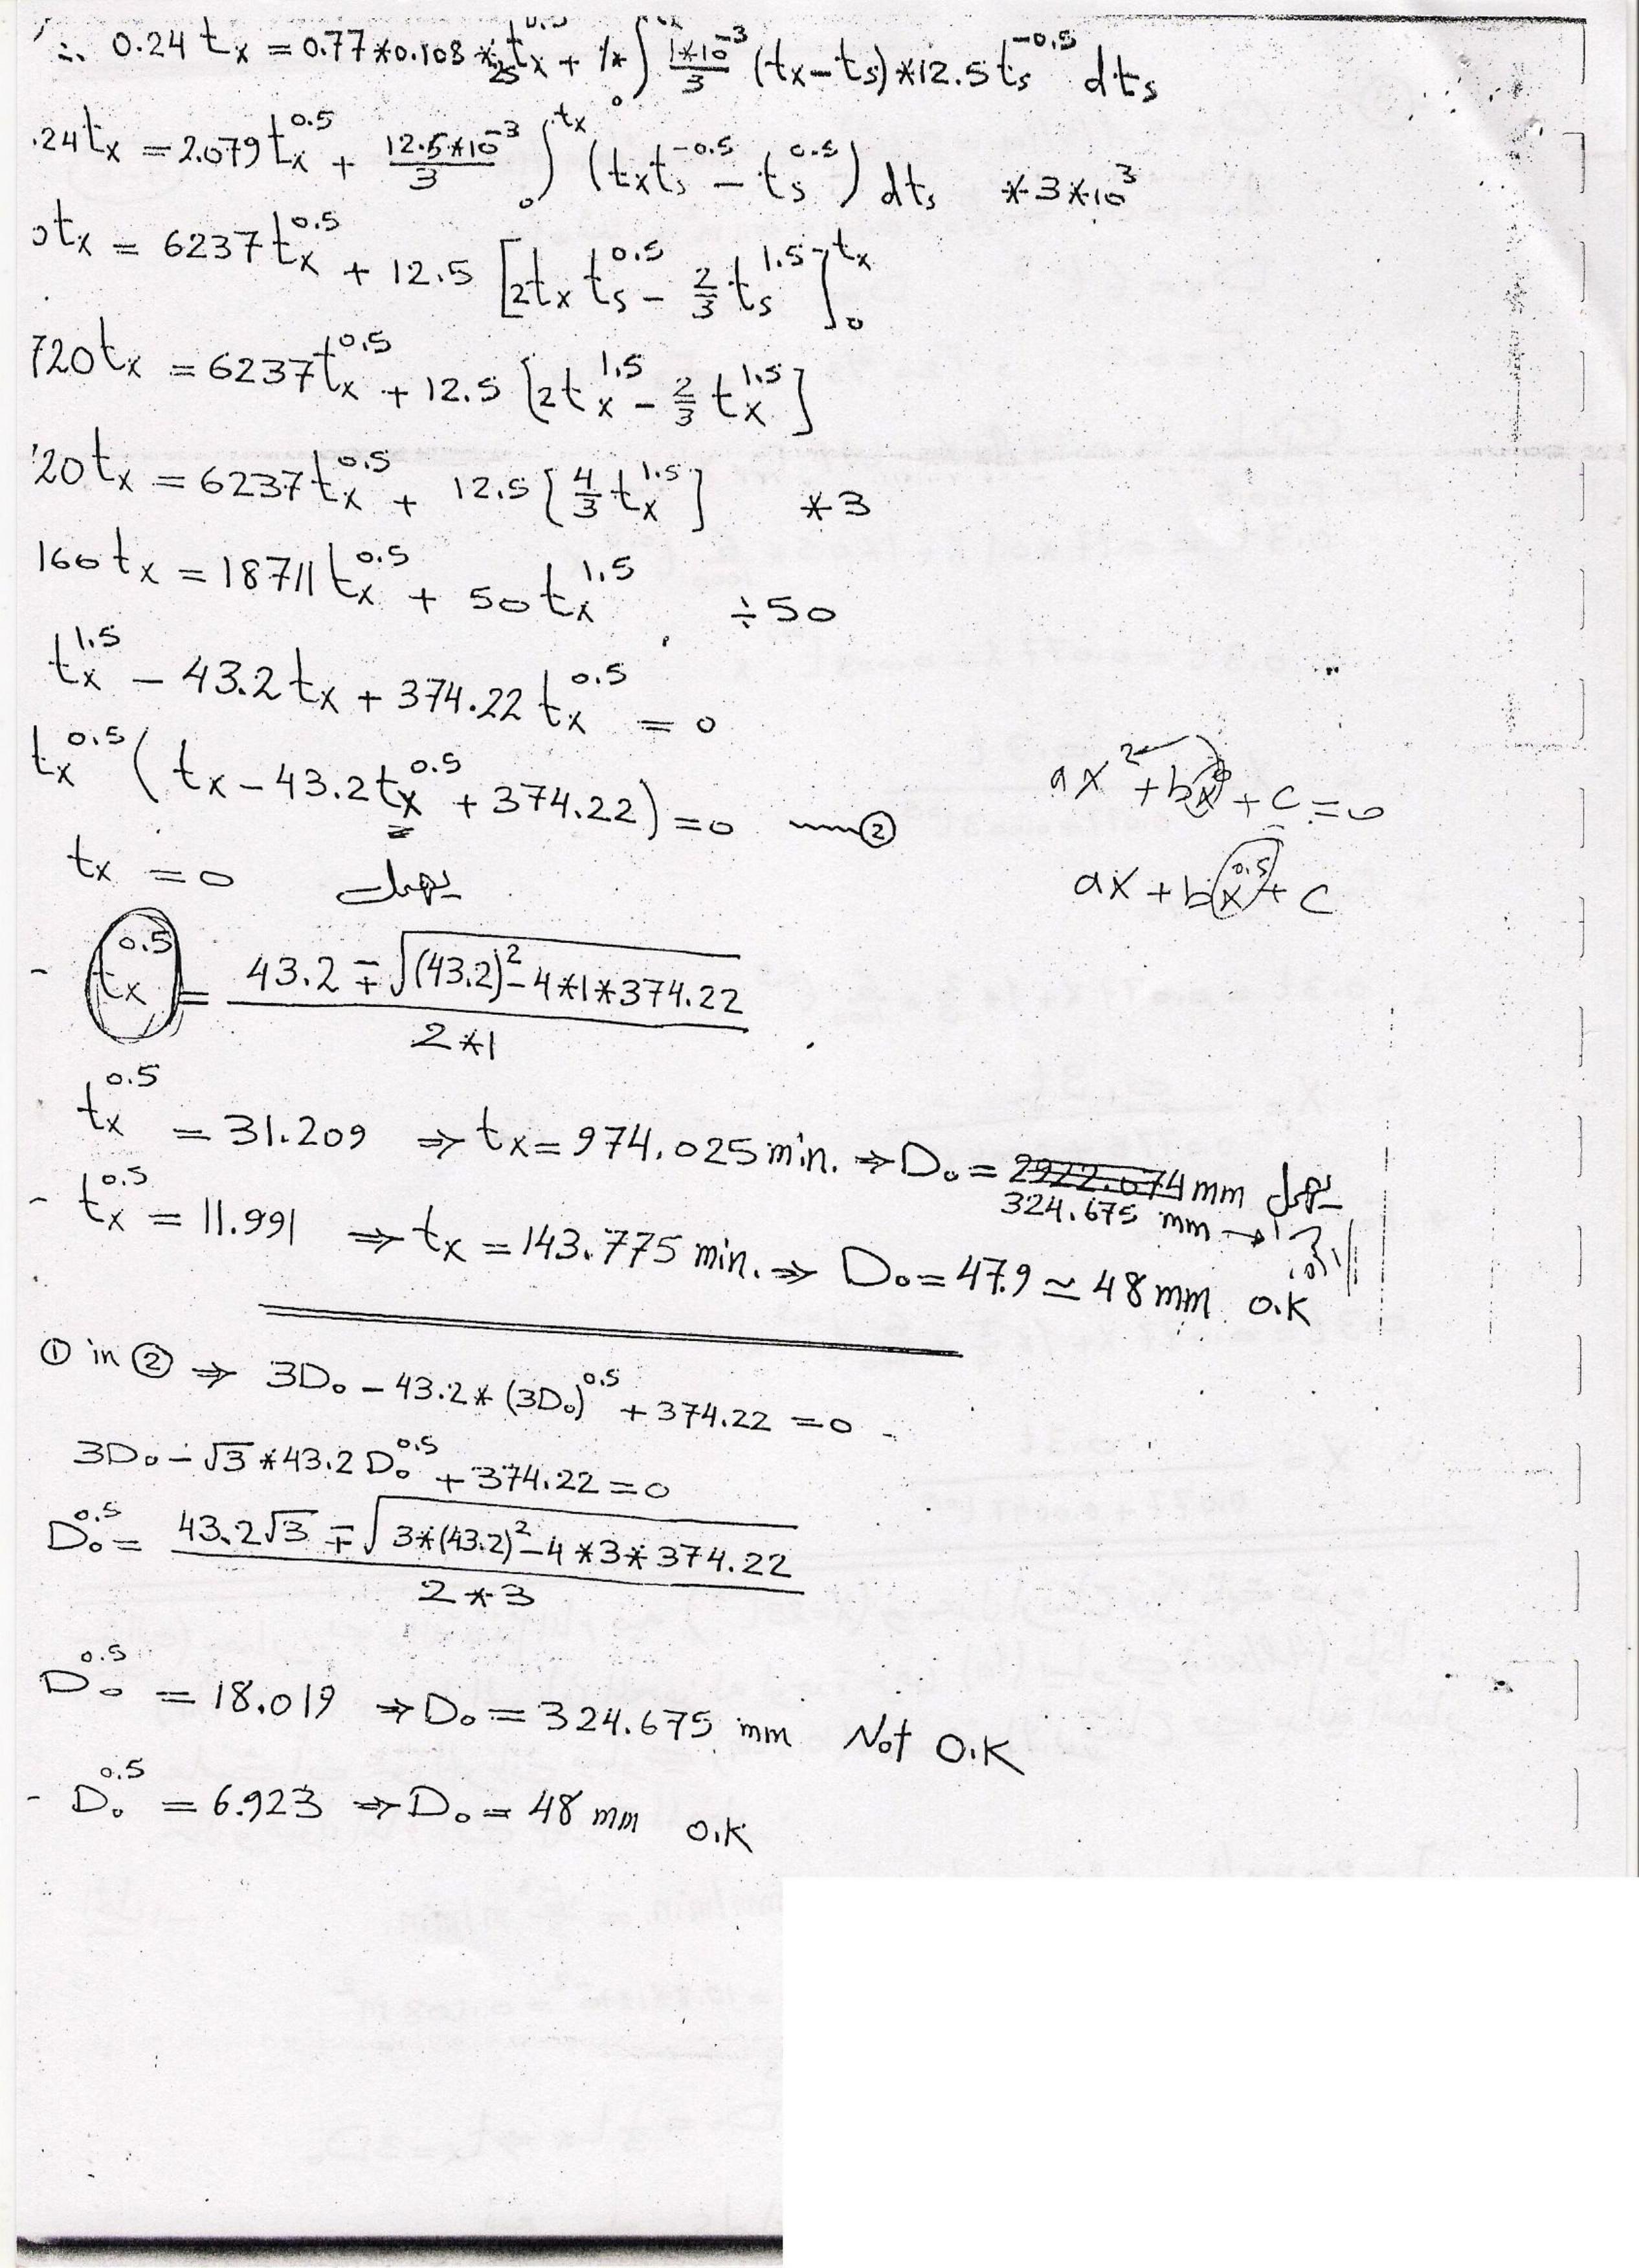 ∴ 0.24 tx = 0.77*0.108 * 25 tx^0.5 + 1* ∫₀^tx (1*10^-3)/3 (tx-ts)*12.5 ts^-0.5 dts
.24tx = 2.079 tx^0.5 + (12.5*10^-3)/3 ∫₀^tx (tx ts^-0.5 - ts^0.5) dts *3*10^3
0tx = 6237 tx^0.5 + 12.5 [2tx ts^0.5 - 2/3 ts^1.5]₀^tx
720tx = 6237 tx^0.5 + 12.5 [2tx^1.5 - 2/3 tx^1.5]
20tx = 6237 tx^0.5 + 12.5 [4/3 tx^1.5] *3
160 tx = 18711 tx^0.5 + 50 tx^1.5 ÷50
tx^1.5 - 43.2 tx + 374.22 tx^0.5 = 0
tx^0.5 (tx - 43.2 tx^0.5 + 374.22) = 0 ②
ax^2 + bx + c = 0
tx = 0 يهمل
ax + bx^0.5 + c
- tx^0.5 = (43.2 ∓ √((43.2)^2 - 4*1*374.22)) / (2*1)
- tx^0.5 = 31.209 ⇒ tx = 974.025 min. ⇒ D₀ = 2922.074 mm يهمل
324.675 mm →
- tx^0.5 = 11.991 ⇒ tx = 143.775 min. ⇒ D₀ = 47.9 ≃ 48 mm O.K
① in ② ⇒ 3D₀ - 43.2*(3D₀)^0.5 + 374.22 = 0
3D₀ - √3*43.2 D₀^0.5 + 374.22 = 0
D₀^0.5 = (43.2√3 ∓ √(3*(43.2)^2 - 4*3*374.22)) / (2*3)
D₀^0.5 = 18.019 ⇒ D₀ = 324.675 mm Not O.K
- D₀^0.5 = 6.923 ⇒ D₀ = 48 mm O.K